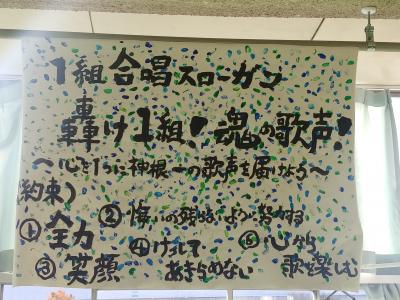 1組合唱スローガン
轟け1組!魂の歌声!
～心を1つに神根一の歌声を届けよう～
(約束)
①全力
②悔いの残らないよう努力する
③笑顔
④けっしてあきらめない
⑤心から歌を楽しむ